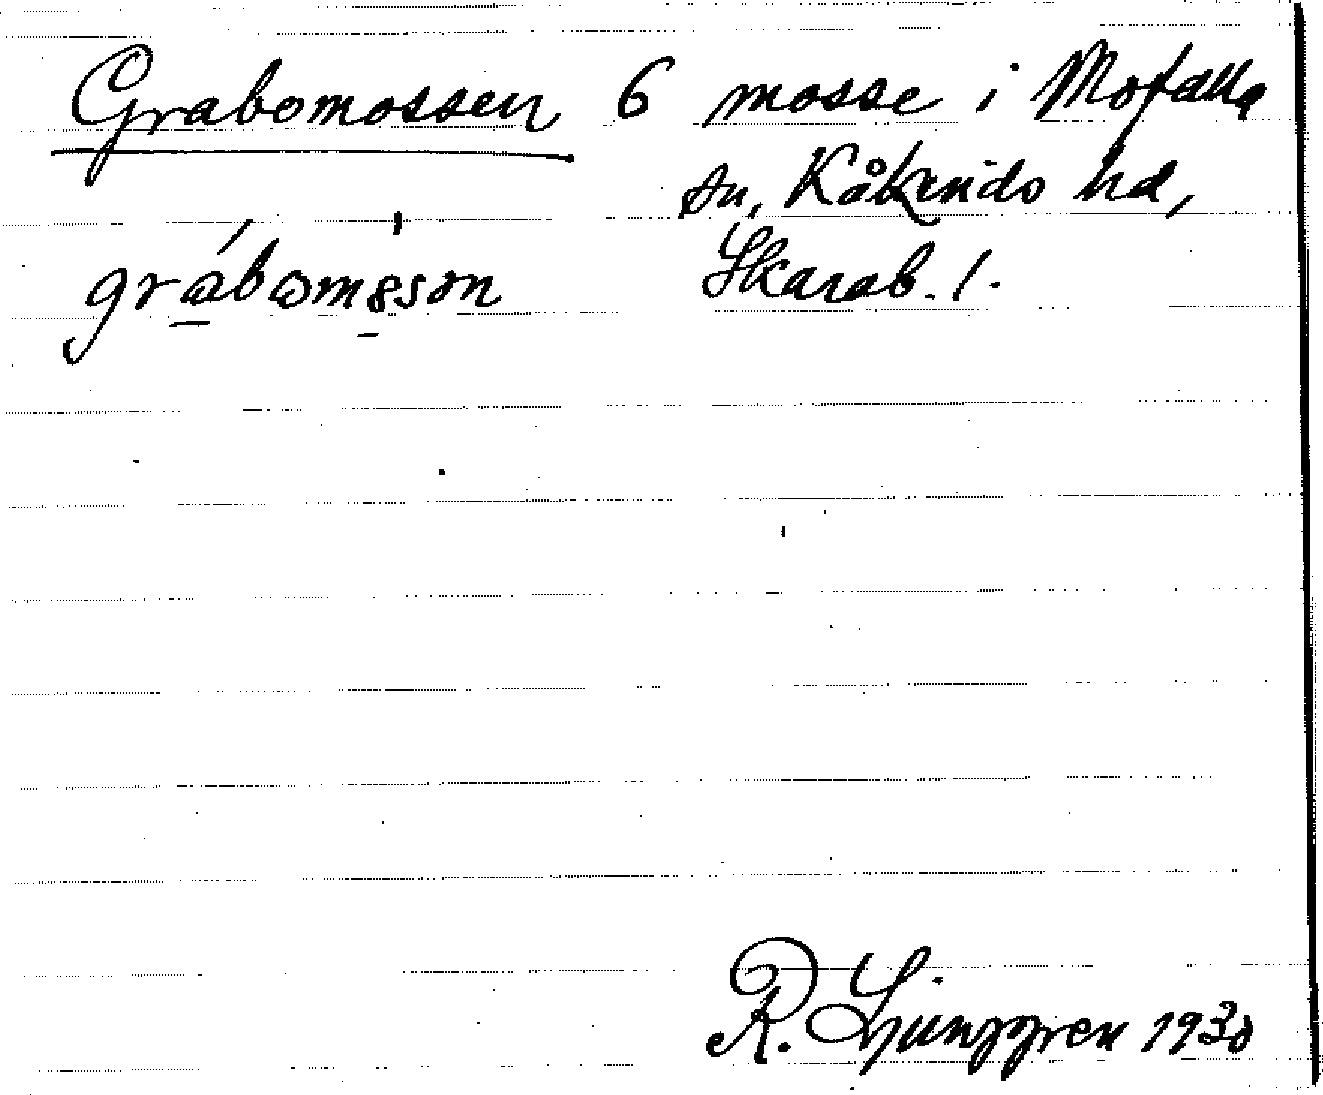 Grabomossen 6 mosse i Mofalla
sn, Kåkinds hd,
grábomossən Skarab. l.
R. Ljunggren 1930